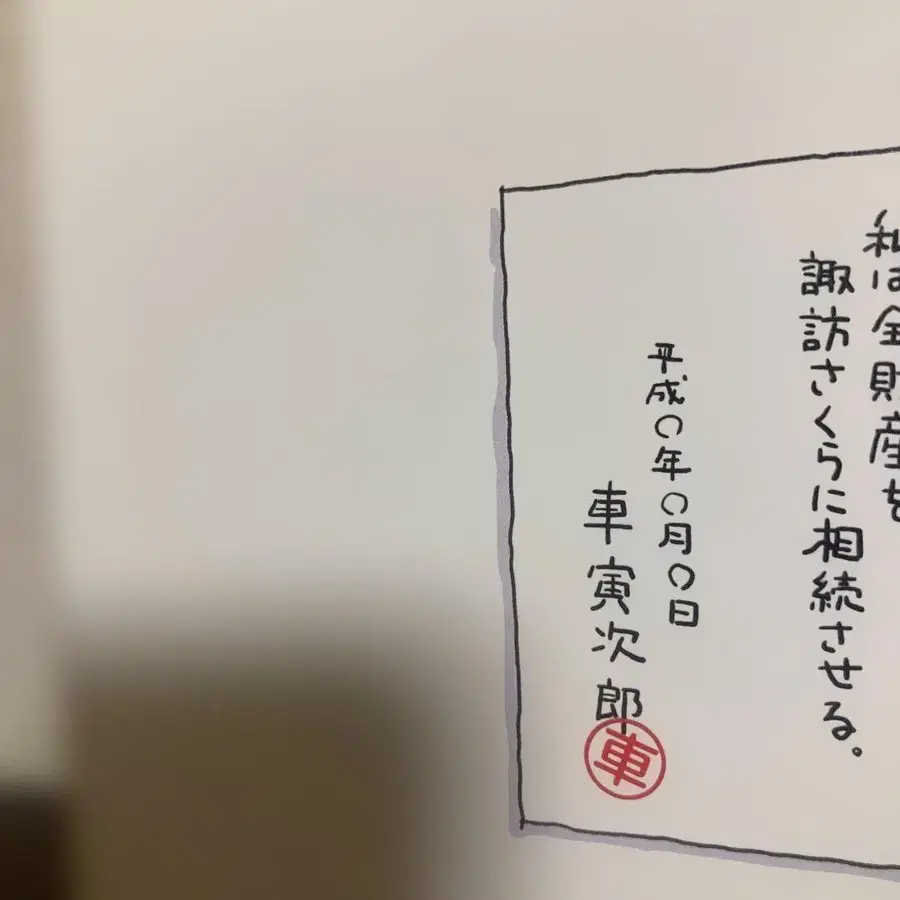 私は全財産を
諏訪さくらに相続させる。
平成〇年〇月〇日
車寅次郎
車